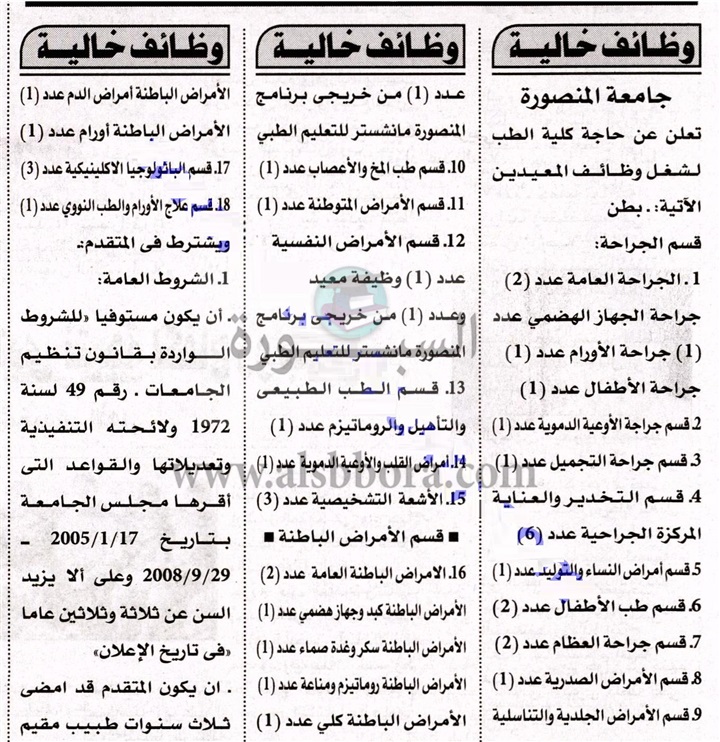 وظائف خالية
جامعة المنصورة
تعلن عن حاجة كلية الطب
لشغل وظائف المعيدين
الآتية: . بطن
قسم الجراحة:
1 . الجراحة العامة عدد (2)
جراحة الجهاز الهضمي عدد
(1) جراحة الأورام عدد (1)
جراحة الأطفال عدد (1)
2. قسم جراجة الأوعية الدموية عدد (1)
3. قسم جراحة التجميل عدد (1)
4. قسم التخدير والعناية
المركزة الجراحية عدد (6)
5. قسم أمراض النساء والتوليد عدد (1)
6. قسم طب الأطفال عدد (2)
7. قسم جراحة العظام عدد (2)
8. قسم الأمراض الصدرية عدد (1)
9. قسم الأمراض الجلدية والتناسلية
وظائف خالية
عدد (1) من خريجى برنامج
المنصورة مانشستر للتعليم الطبي
10. قسم طب المخ والأعصاب عدد (1)
11. قسم الأمراض المتوطنة عدد (1)
12. قسم الأمراض النفسية
عدد (1) وظيفة معيد
وعدد (1) من خريجى برنامج
المنصورة مانشستر للتعليم الطبي
13. قسم الطب الطبيعى
والتأهيل والروماتيزم عدد (1)
14. أمراض القلب والأوعية الدموية عدد (1)
15. الأشعة التشخيصية عدد (3)
■ قسم الأمراض الباطنة ■
16. الامراض الباطنة العامة عدد (2)
الأمراض الباطنة كبد وجهاز هضمي عدد (1)
الأمراض الباطنة سكر وغدة صماء عدد (1)
الأمراض الباطنة روماتيزم ومناعة عدد (1)
الأمراض الباطنة كلي عدد (1)
وظائف خالية
الأمراض الباطنة أمراض الدم عدد (1)
الأمراض الباطنة أورام عدد (1)
17. قسم الباثولوجيا الاكلينيكية عدد (3)
18. قسم علاج الأورام والطب النووي عدد (1)
ويشترط فى المتقدم:
1. الشروط العامة:
. أن يكون مستوفيا «للشروط
الواردة بقانون تنظيم
الجامعات . رقم 49 لسنة
1972 ولائحته التنفيذية
وتعديلاتها والقواعد التى
أقرها مجلس الجامعة
بتاريخ 2005/1/17 ـ
2008/9/29 وعلى ألا يزيد
السن عن ثلاثة وثلاثين عاما
«فى تاريخ الإعلان»
. ان يكون المتقدم قد امضى
ثلاث سنوات طبيب مقيم
السبورة
www.alsbbora.com